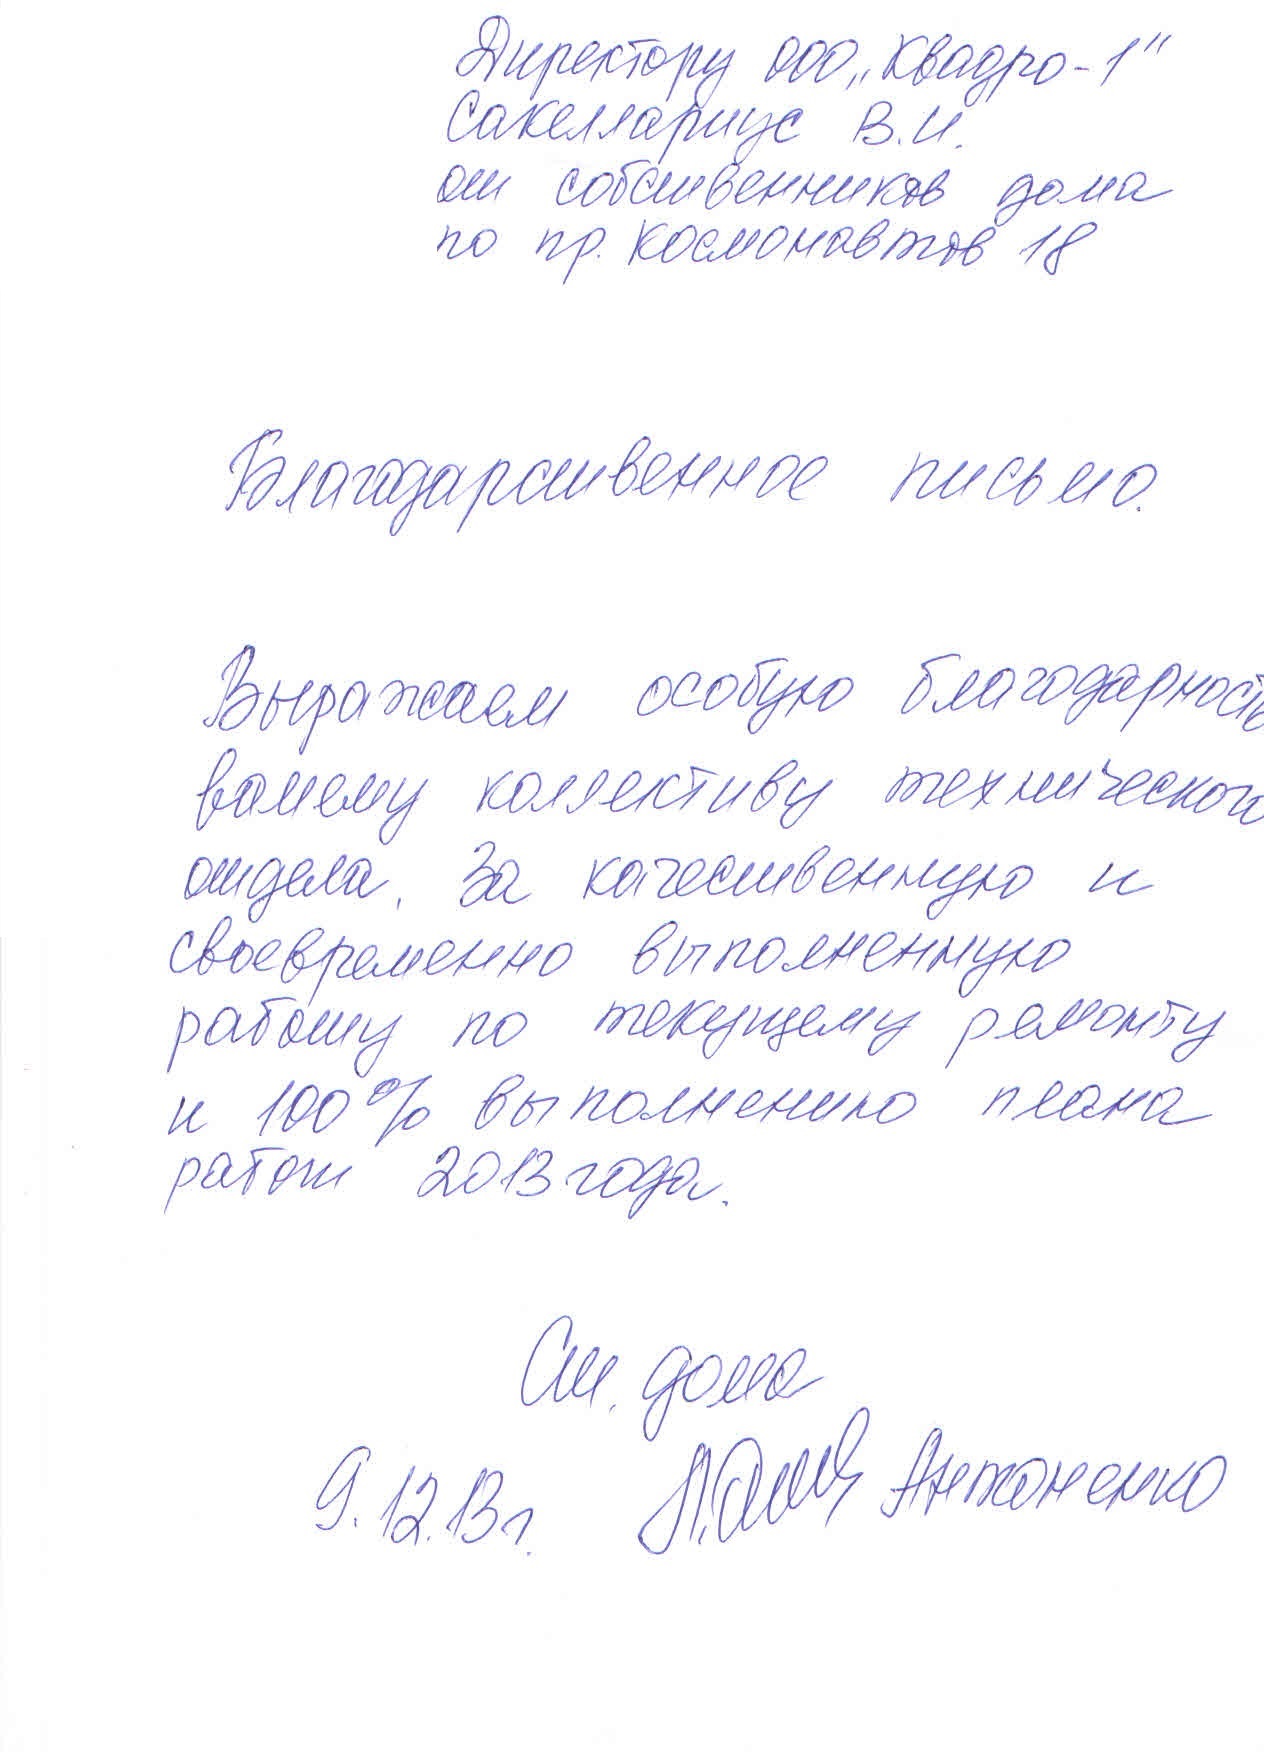 Директору ООО „Квадро-1"
Сакеллариус В.И.
от собственников дома
по пр. Космонавтов 18
Благодарственное письмо.
Выражаем особую благодарность
вашему коллективу технического
отдела. За качественную и
своевременно выполненную
работу по текущему ремонту
и 100% выполнению плана
работ 2013 года.
Ст. дома
9.12.13г. Антоненко